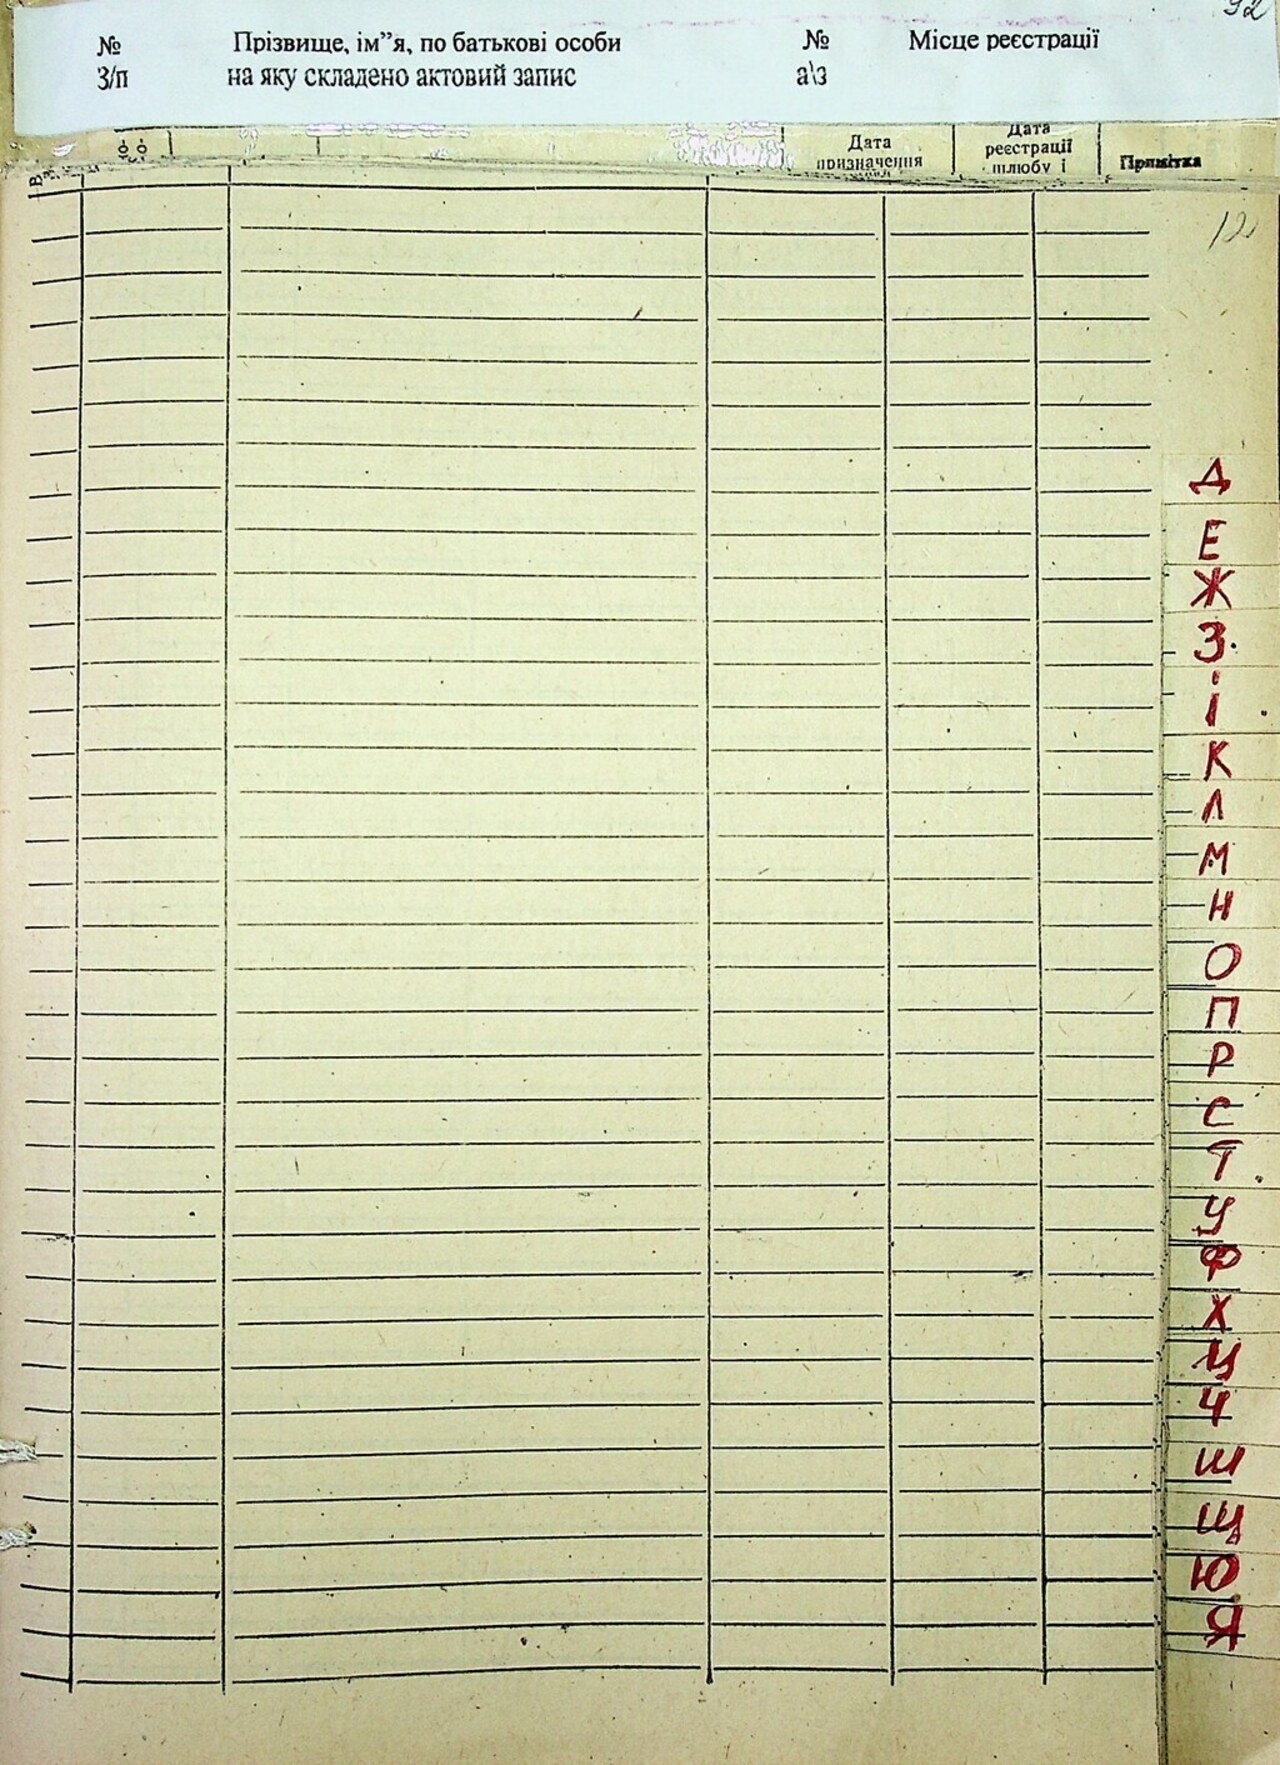 № Прізвище, ім”я, по батькові особи № Місце реєстрації
З/п на яку складено актовий запис а\з
Дата
призначення
Дата
реєстрації
шлюбу і
Примітка
Д
Е
Ж
З
І
К
Л
М
Н
О
П
Р
С
Т
У
Ф
Х
Ц
Ч
Ш
Щ
Ю
Я